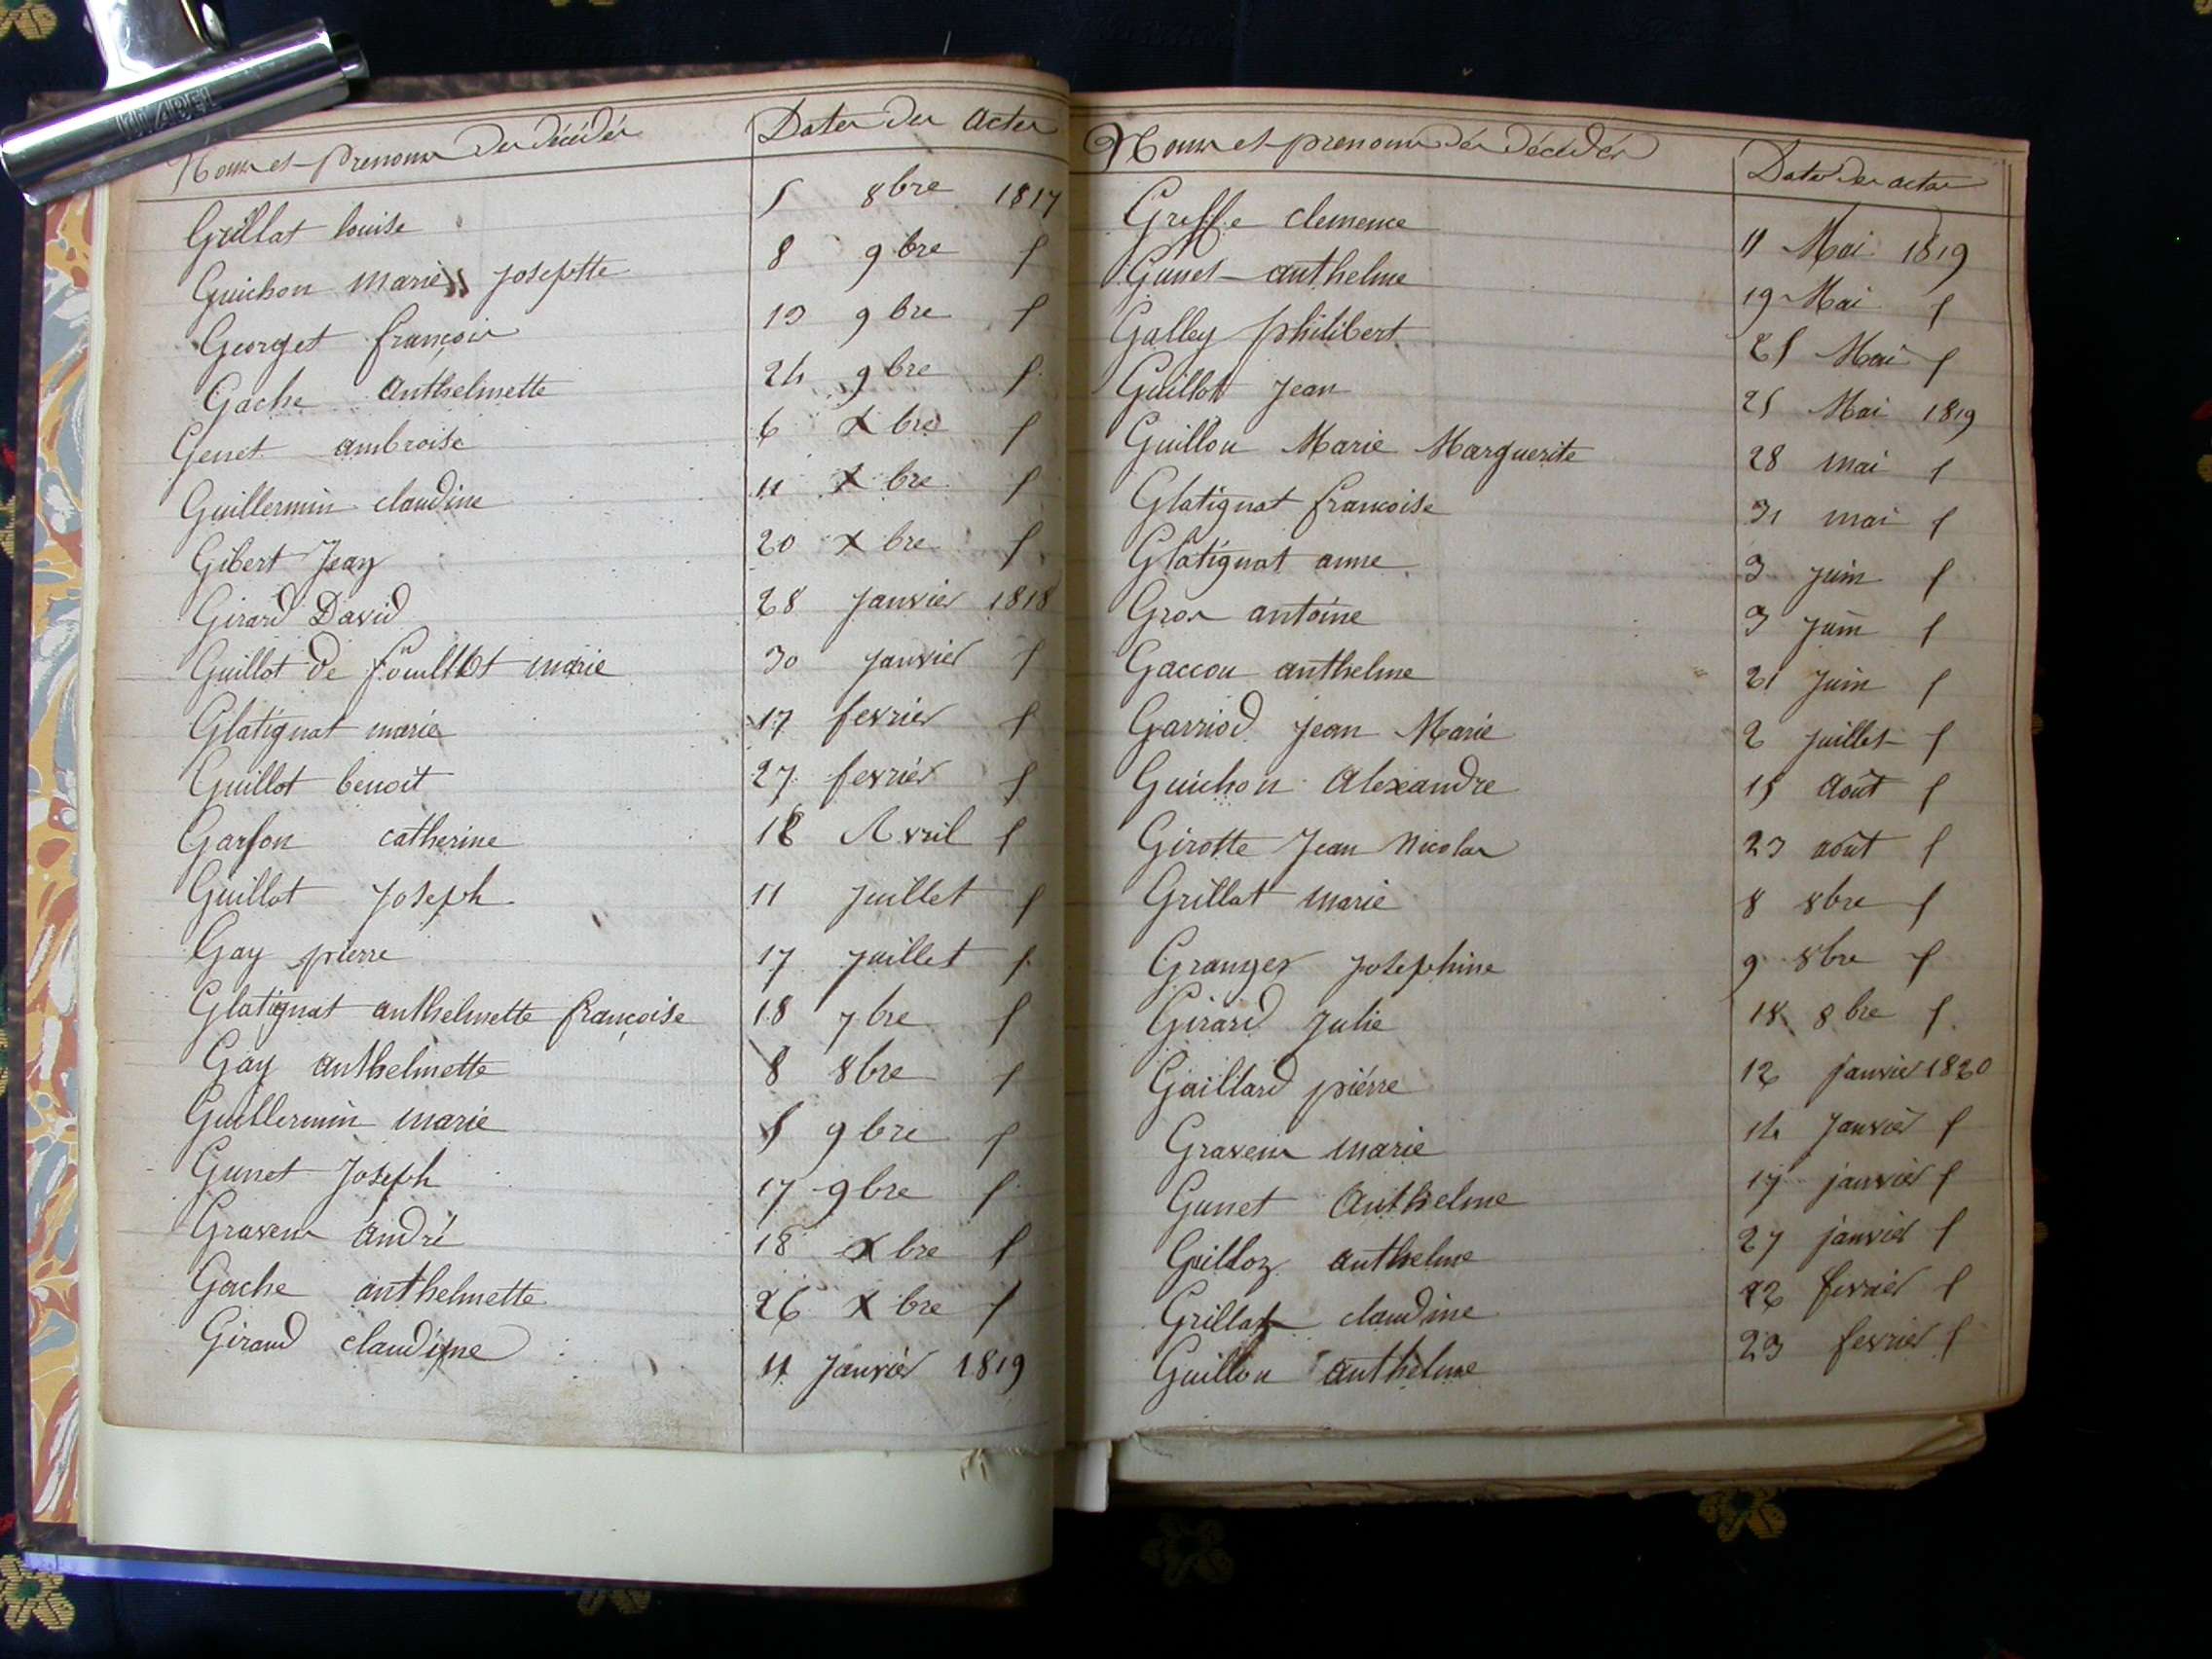 Noms et prenoms des décédés Dates des Actes
Grillat louise 5 8bre 1817
Guichon marie josephte 8 9bre f
Georget françois 13 9bre f
Gache anthelmette 24 9bre f
Genet ambroise 6 Xbre f
Guillermin claudine 11 Xbre f
Gibert Jean 20 Xbre f
Girard David 28 janvier 1818
Guillot de marie 30 janvier f
Glatignat marie 17 fevrier f
Guillot benoit 27 fevrier f
Garson catherine 18 Avril f
Guillot joseph 11 juillet f
Gay pierre 17 juillet f
Glatignat anthelmette françoise 18 7bre f
Gay anthelmette 8 8bre f
Guillermin marie 5 9bre f
Gunet Joseph 17 9bre f
Graveur andré 18 Xbre f
Gache anthelmette 26 Xbre f
Giraud claudine 11 Janvier 1819
Noms et prenoms des décédés Dates des actes
Greffe clemence 11 Mai 1819
Gunet anthelme 19 Mai f
Galley philibert 25 Mai f
Guillot jean 25 Mai 1819
Guillou Marie Marguerite 28 mai f
Glatignat francoise 31 mai f
Glatignat anne 3 juin f
Gros antoine 3 juin f
Gaccou anthelme 21 juin f
Garriod jean Marie 2 juillet f
Guichon Alexandre 15 Août f
Girotte Jean Nicolas 23 août f
Grillat marie 8 8bre f
Granger josephine 9 8bre f
Girard Julie 18 8bre f
Gaillard pierre 12 janvier 1820
Graveur marie 14 Janvier f
Gunet Anthelme 17 janvier f
Guilloz anthelme 27 janvier f
Grillat claudine 22 fevrier f
Guillou anthelme 23 fevrier f